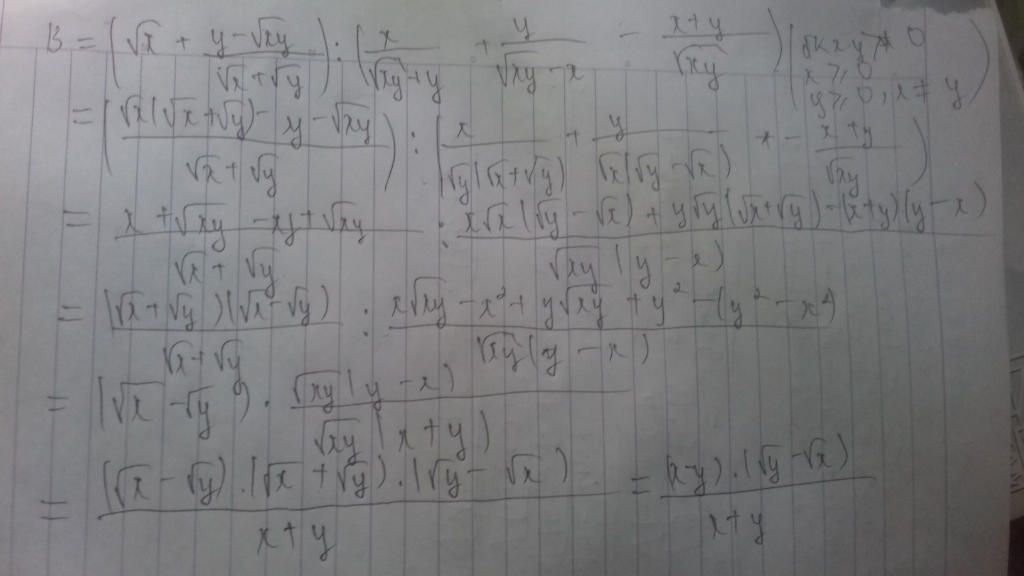 B = (√x + (y - √xy)/(√x + √y)) : (x/(√xy + y) + y/(√xy - x) - (x + y)/√xy) (đk xy ≠ 0
x ≥ 0
y ≥ 0, x ≠ y)
= ((√x(√x + √y) - y - √xy)/(√x + √y)) : (x/(√y(√x + √y)) + y/(√x(√y - √x)) - (x + y)/√xy)
= (x + √xy - xy + √xy)/(√x + √y) : (x√x(√y - √x) + y√y(√x + √y) - (x + y)(y - x))/(√xy(y - x))
= ((√x + √y)(√x - √y))/(√x + √y) : (x√xy - x² + y√xy + y² - (y² - x²))/(√xy(y - x))
= (√x - √y) · (√xy(y - x))/(√xy(x + y))
= ((√x - √y).(√x + √y).(√y - √x))/(x + y) = ((x - y).(√y - √x))/(x + y)